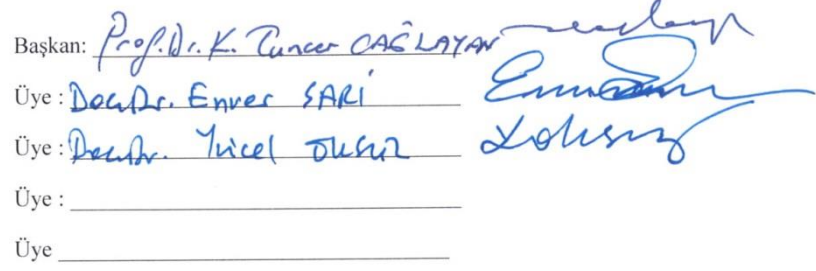 Başkan: Prof. Dr. K. Tuncer ÇAĞLAYAN
Üye : Doç. Dr. Enver SARI
Üye : Doç. Dr. Yücel ÖKSÜZ
Üye :
Üye